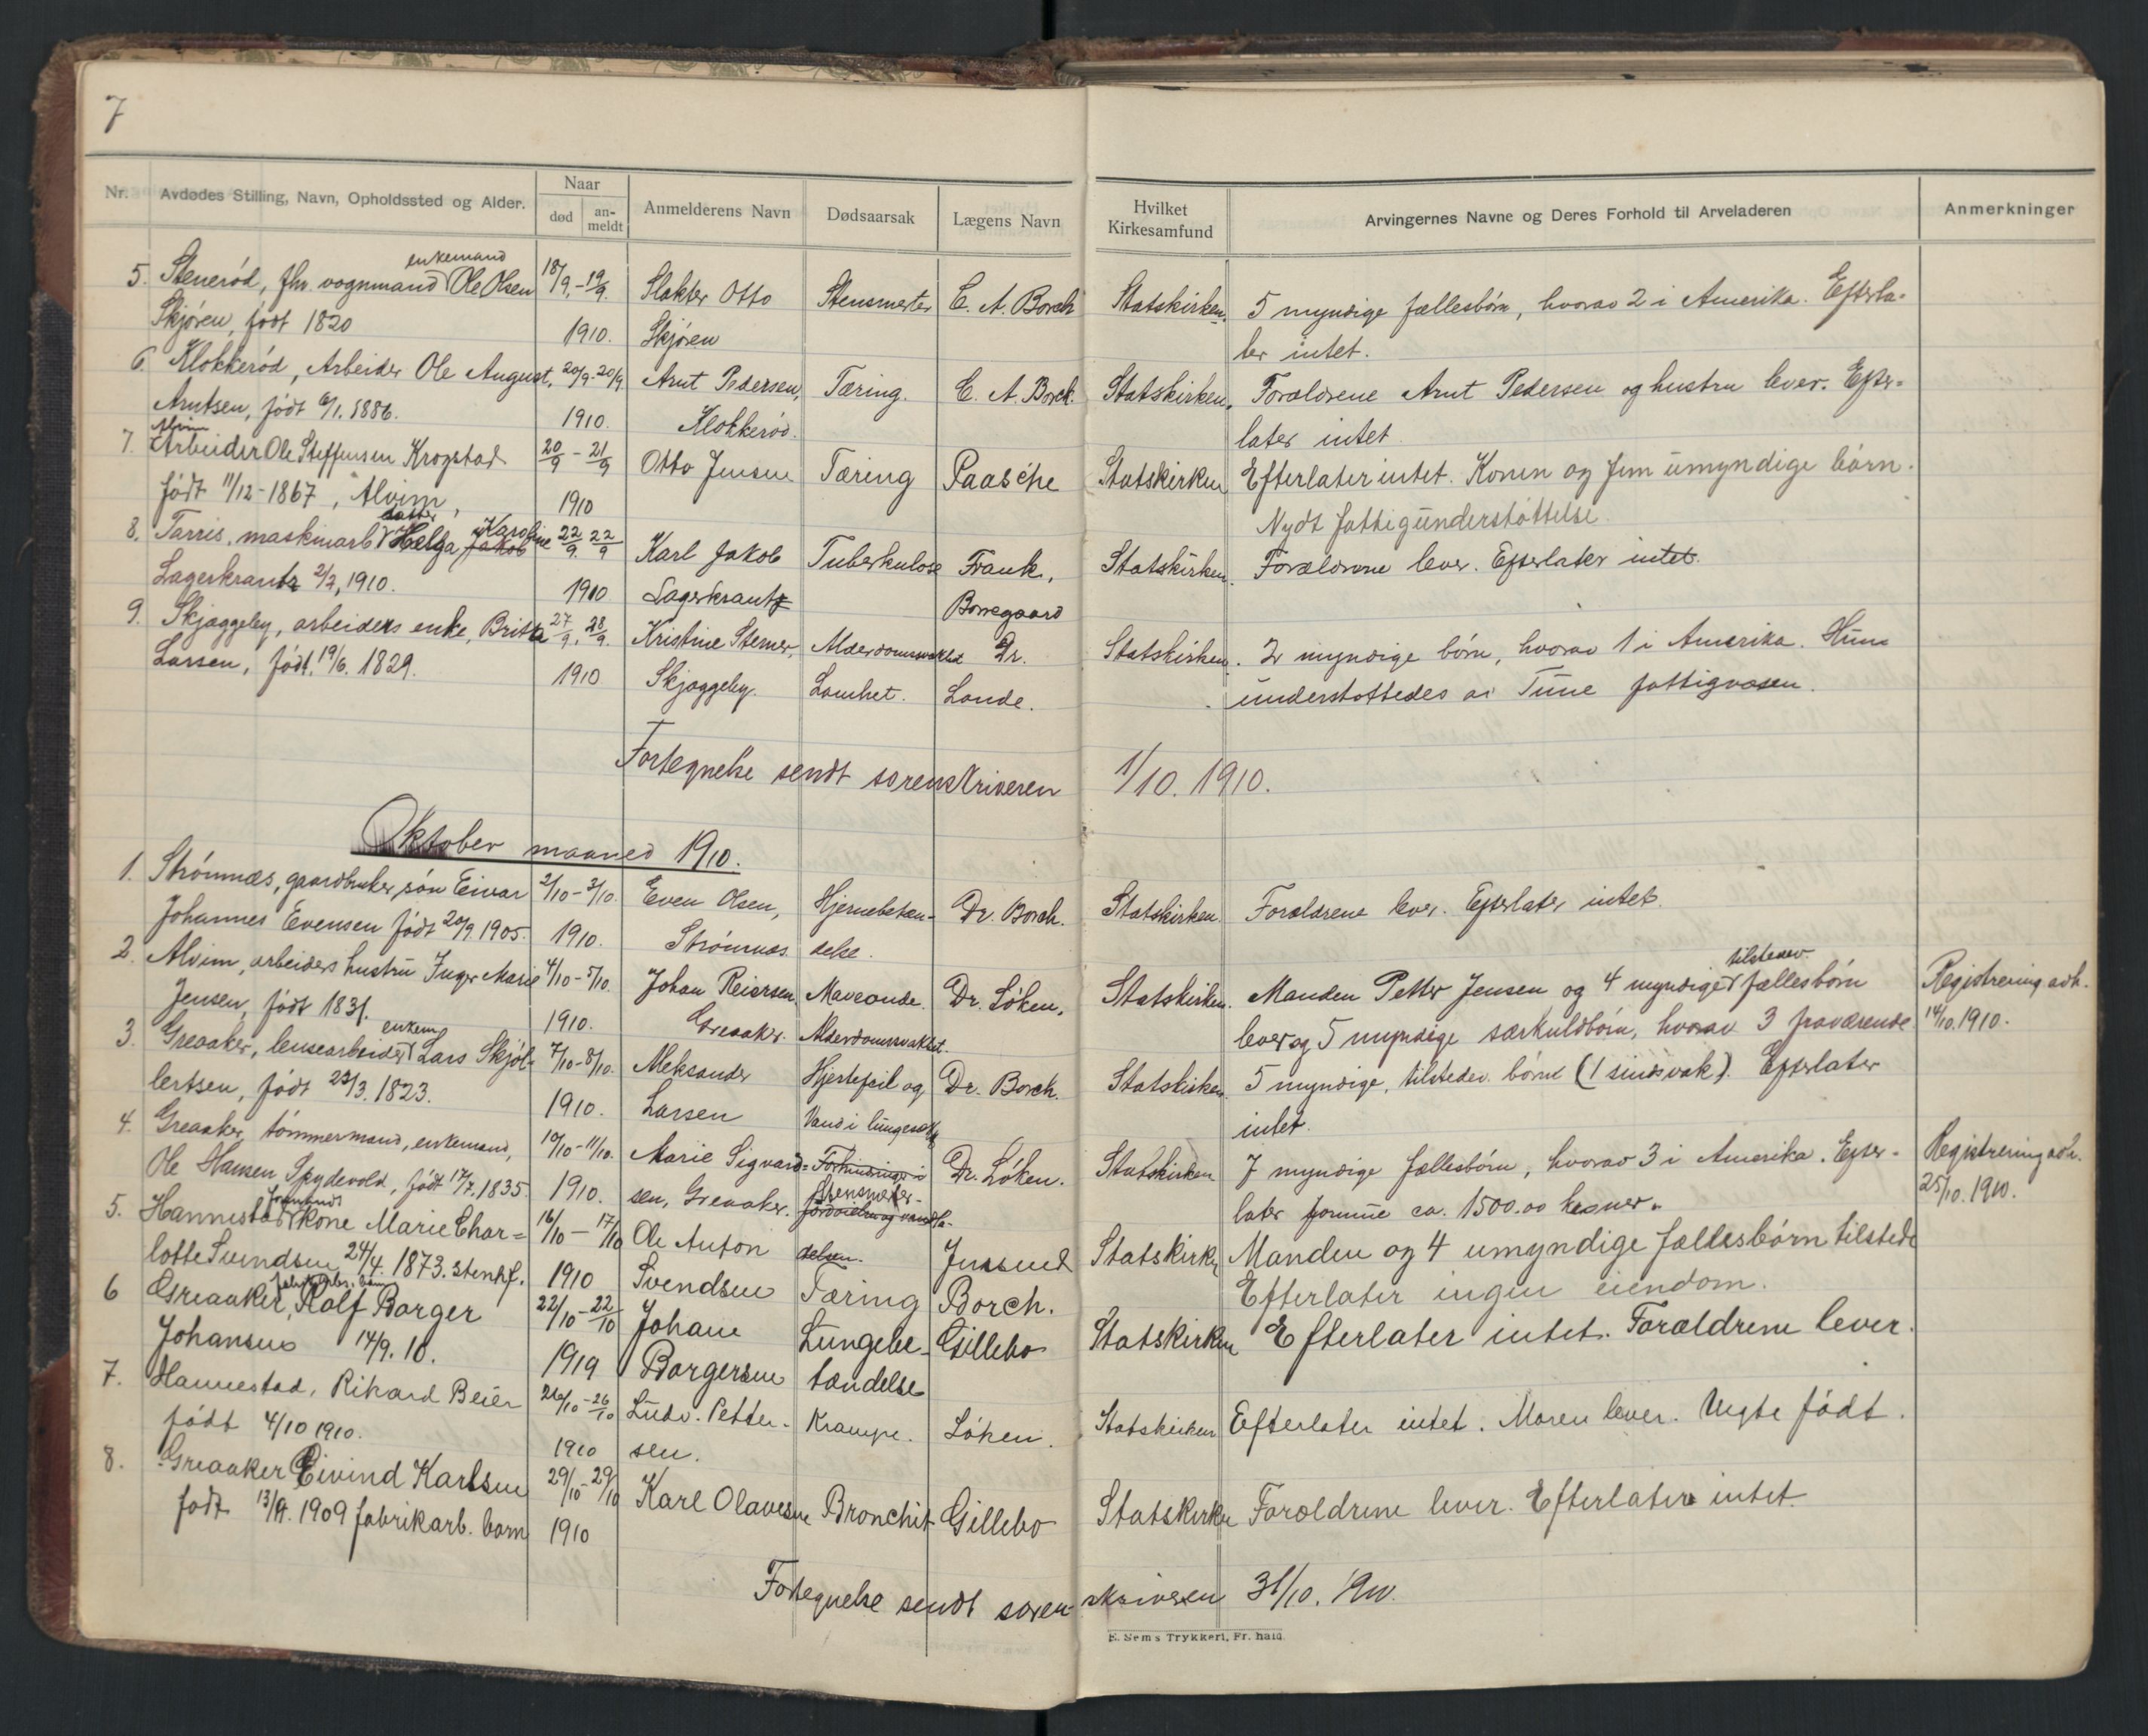 7
Nr. Avdødes Stilling, Navn, Opholdssted og Alder. Naar død an-meldt Anmelderens Navn Dødsaarsak Lægens Navn Hvilket Kirkesamfund Arvingernes Navne og Deres Forhold til Arveladeren Anmerkninger
enkemand
5. Stenerød, fhr. vognmand Ole Olsen 18/9.-19/9. Slakter Otto Stensmerter C. A. Borch Statskirken. 5 myndige fællesbørn, hvorav 2 i Amerika. Efterla-
Skjøren, født 1820 1910. Skjøren ter intet.
6. Klokkerød, Arbeider Ole August, 20/9-20/9. Arnt Pedersen, Tæring. C. A. Borch. Statskirken. Forældrene Arnt Pedersen og hustru lever. Efter-
Arntsen, født 6/1. 1886. 1910. Klokkerød. later intet.
Alvim
7. Arbeider Ole Steffensen Krogstad 20/9 - 21/9 Otto Jensen Tæring Paasche Statskirken Efterlater intet. Konen og fem umyndige børn.
født 11/12-1867, Alvim, 1910 Nydt fattigunderstøttelse
datter Karoline
8. Tarris, maskinarb. Helga Jakob 22/9. 22/9 Karl Jakob Tuberkulose Frank, Statskirken. Forældrene lever. Efterlater intet.
Lagerkrantz 2/2, 1910. 1910 Lagerkrantz Borregaard
9. Skjæggeby, arbeiders enke, Britta 27/9. 28/9. Kristine Stemer, Alderdomssvaklet Dr. Statskirken. 2 myndige børn, hvorav 1 i Amerika. Hun
Larsen, født. 19/6. 1829. 1910 Skjæggeby. Lamhet. Lande. understøttedes av Tune fattigvæsen.
Fortegnelse sendt sorenskriveren 1/10. 1910.
Oktober maaned 1910.
1. Strømnæs, gaardbruker søn Eivar 2/10-3/10. Even Olsen, Hjernebetæn- Dr. Borch. Statskirken. Forældrene lever. Efterlater intet.
Johannes Evensen født 20/9. 1905. 1910. Strømnæs delse.
tilstedev.
2. Alvim, arbeiders hustru Inger Marie 4/10-5/10. Johan Reiersen, Maveonde. Dr. Løken. Statskirken. Manden Petter Jensen og 4 myndige fællesbørn Registrering avh.
Jensen, født 1831. 1910. Greaaker. Alderdomssvaklet. lever og 5 myndige særkuldbørn, hvorav 3 fraværende 14/10. 1910.
enkem
3. Greaaker, lensearbeider Lars Skjøl- 7/10-8/10. Aleksander Hjertefeil og Dr. Borch. Statskirken 5 myndige, tilstedev. børn (1 sinsvak). Efterlater
lertsen, født 23/3. 1823. 1910. Larsen Vand i lungesæk intet.
4. Greaaker, tømmermand, enkemand, 10/10-11/10. Marie Sigvard- Forhindringer i Dr. Løken. Statskirken 7 myndige fællesbørn, hvorav 3 i Amerika. Efter- Registrering avh.
Ole Hansen Spydevold, født 17/7. 1835. 1910. sen, Greaaker. Stensmerter- later formue ca. 1500.00 kroner. 25/10. 1910.
5. Hannestad kone Marie Char- 16/10 - 17/10 Ole Anton delsen. Statskirke Manden og 4 umyndige fællesbørn tilstede
lotte Svendsen 24/4. 1873. stenhf. 1910 Svendsen Tæring Borch. Efterlater ingen eiendom.
6 Greaaker, Rolf Borger 22/10-22/10 Johan Lungebe- Gillebo Statskirken Efterlater intet. Forældrene lever.
Johansen 14/9. 10. 1910 Borgersen tændelse
7. Hannestad, Rikard Beier 26/10-26/10 Ludv. Petter- Krampe. Løken. Statskirken Efterlater intet. Moren lever. Uegte født.
født 4/10 1910. 1910 sen.
8. Greaaker Eivind Karlsen 29/10-29/10 Karl Olavesen Bronchit Gillebo Statskirke Forældrene lever. Efterlater intet.
født 13/9. 1909 fabrikarb. barn 1910
Fortegnelse sendt soren-skriveren 31/10. 1910.
E. Sem's Trykkeri, Fr.hald.